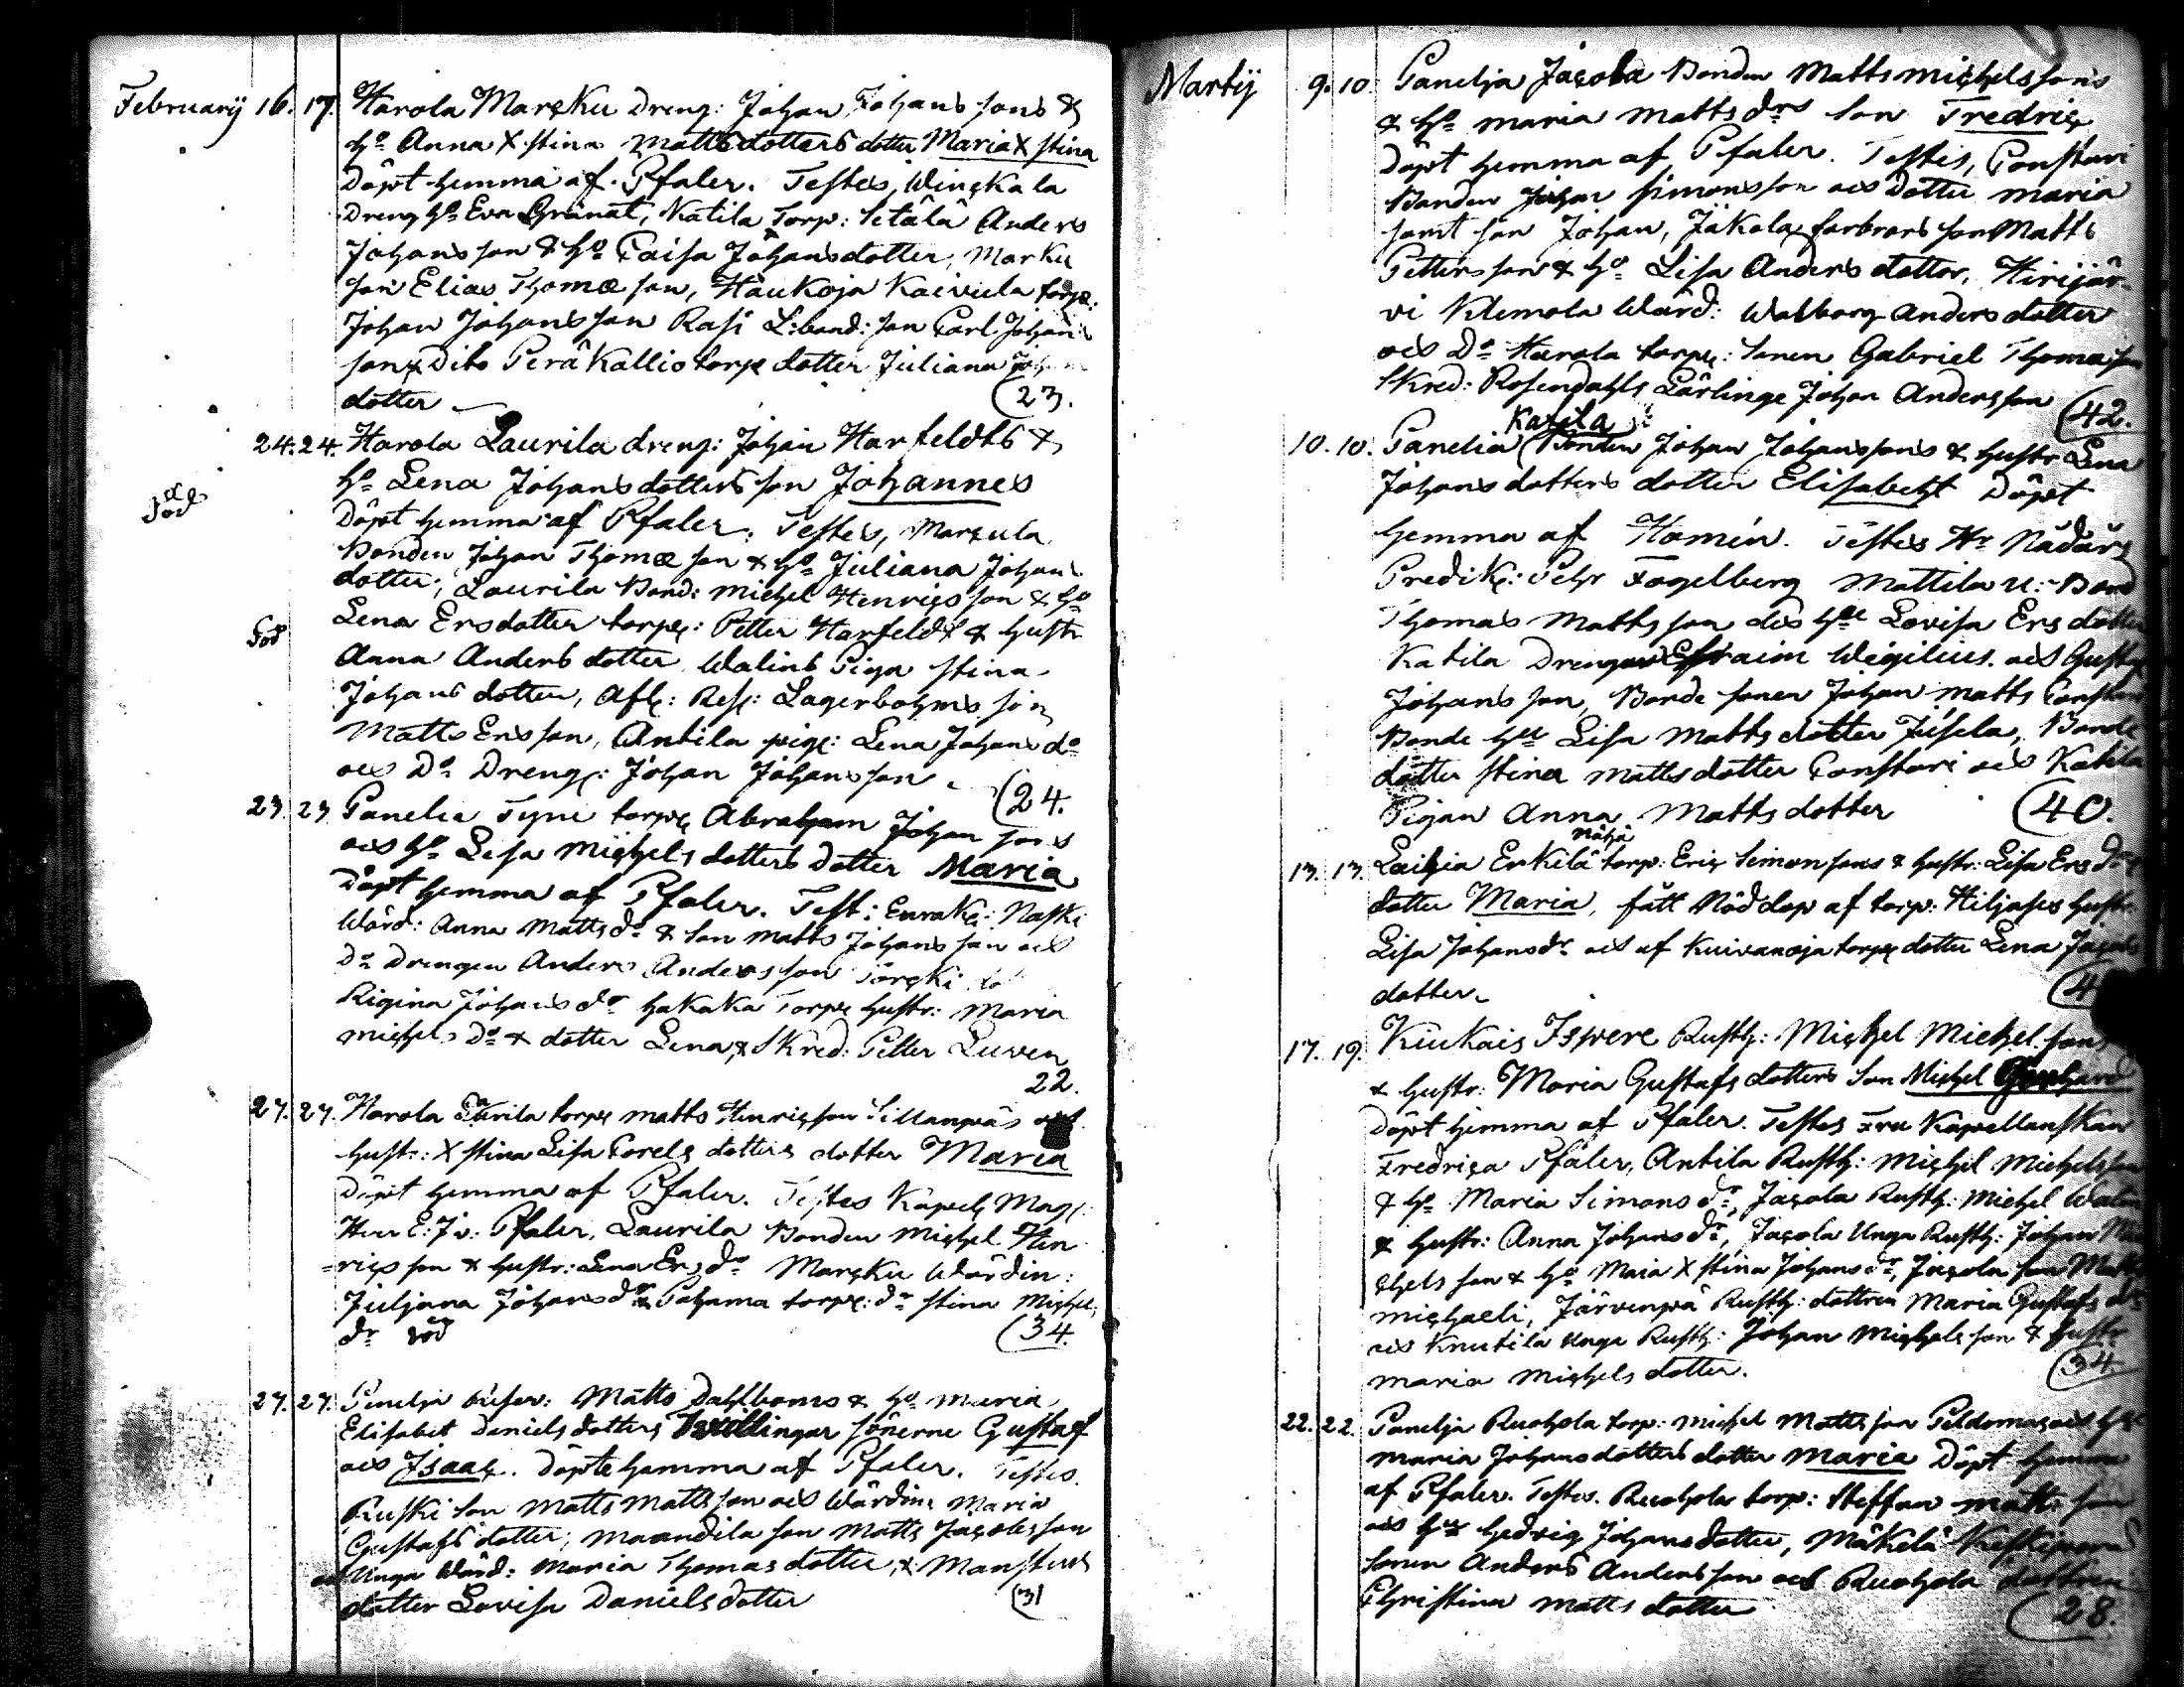 Februarij 16. 17. Harola Marcku dreng: Johan Johans sons &
h:o Anna Xstina Mattsdotters dotter Maria Xstina
Döpt hemma af Pfaler. Testes, Winckala
Dreng h:o Eva Granat, Katila Torp: Setälä Anders
Johansson & h:o Caisa Johansdotter, Marku
son Elias Thomæ son, Haukoja Kaivula torp:
Johan Johansson Rasi L:bond: son Carl Johan
son & Dito Peräkallio torp dotter Juliana Johans
dotter (23.
24. 24. Harola Laurila dreng: Johan Harfeldts &
h:o Lena Johansdotters son Johannes
död
Döpt hemma af Pfaler. Testes, Marcula
Bonden Johan Thomæ son & h:o Juliana Johans
dotter, Laurila Bond: Michel Henricsson & h:o
död Lena Ersdotter torp: Petter Harfeldt & hustr
Anna Anders dotter Walins Piga Stina
Johans dotter, Afsk: Ref: Lagerbohms son
Matts Ersson, Antila pig: Lena Johans d:o
och D:o Dreng: Johan Johansson (24.
23. 23. Panelia Tyni torp Abraham Johan sons
och h:o Lisa Michels dotters dotter Maria
Döpt hemma af Pfaler. Test: Eurake: Naski
Wärd: Anna Matts d:o & son Matts Johans son och
D:o Drengen Anders Andersson Torcki
Rigina Johans d:r Hakaka Torp hustr: Maria
Michels D:r & dotter Lena, & Skred: Petter Luven
22.
27. 27. Harola Laurila torp Matts Henricsson Sillanpää och
hustr: Xstina Lisa Carels dotters dotter Maria
Döpt hemma af Pfaler. Testes Kapel: Mag:
Herr E: J v: Pfaler, Laurila Bonden Michel Hen
=rics son & hustr: Lena Ers d:r Marcku Wärdin:
Juljana Johans d:r & Pohjama torp: d:r Stina Michels
d:r död (34.
27. 27. Panelja Matts Dahlboms & h:o Maria
Elisabet Daniels dotters Twillingar sönerne Gustaf
och Isaac. Döpte hemma af Pfaler. Testes.
Ruski son Matts Mattsson och Wärdin: Maria
Gustafs dotter, Maandila son Matts Jacobsson
och Unga Wärd: Maria Thomas dotter, &
dotter Lovisa Daniels dotter (31
Martij 9. 10. Panelja Jacola Bonden Matts Michelssons
& h:o Maria Matts d:rs son Fredric
Döpt hemma af Pfaler. Testes, Constari
Bonden Johan Simonsson och dotter Maria
samt son Johan, Jäkola farbrors son Matts
Pettersson & h:o Lisa Anders dotter, Hirijär-
vi Klemola Wärd: Walborg Anders dotter
och D:o Harola torp: sonen Gabriel Thomasson
Skred: Rosendahls Lärlinge Johan Andersson (42.
Katila
10. 10. Panelia Bonden Johan Johanssons & hustr Lena
Johans dotters dotter Elisabeht Döpt
hemma af Hamén. Testes Hr Nådårs
Predik: Pehr Fogelberg Mattila u: Bond
Thomas Mattsson och h:u Lovisa Ers dotter
Katila Drengar Efraim Wigilius och Gustaf
Johansson, Bonde sonen Johan Matts Constari
Bonde h:u Lisa Matts dotter Jusela, Bonde
dotter Stina Mattsdotter Constari och Katila
Pigan Anna Matts dotter (40.
Nähä
13. 13. Laihia Erkilä torp: Eric Simonsons & hustr: Lisa Ers d:rs
dotter Maria, fått Nöddop af torp: Hiljases hustr:
Lisa Johans d:r och af Kuivanoja torp dotter Lena Jacobs
dotter. (4
17. 19. Kiukais Ispere Rusth: Michel Michelsons
& hustr: Maria Gustafs dotters son Michel
Döpt hemma af Pfaler. Testes Fru Kapellanskan
Fredrica Pfaler, Antila Rusth: Michel Michelsson
& h:o Maria Simons d:r, Jacola Rusth: Michel Walin
& hustr: Anna Johans d:r, Jacola Unga Rusth: Johan Mi
chels son & h:o Maia Xstina Johans d:r, Jacola son Matts
Michaeli, Järvenpä Rusth: dottren Maria Gustafs d:r
och Knutila Unga Rusth: Johan Michels son & hustr
Maria Michels dotter. (34
22. 22. Panelja Ruohola torp: Michel Mattsson Peldomas och h:s
Maria Johansdotters dotter Maria Döpt hemma
af Pfaler. Testes. Ruohola torp: Steffan Matts son
och h:u Hedvig Johans dotter, Mäkelä
sonen Anders Andersson och Ruohola dottren
Christina Matts dotter (28.